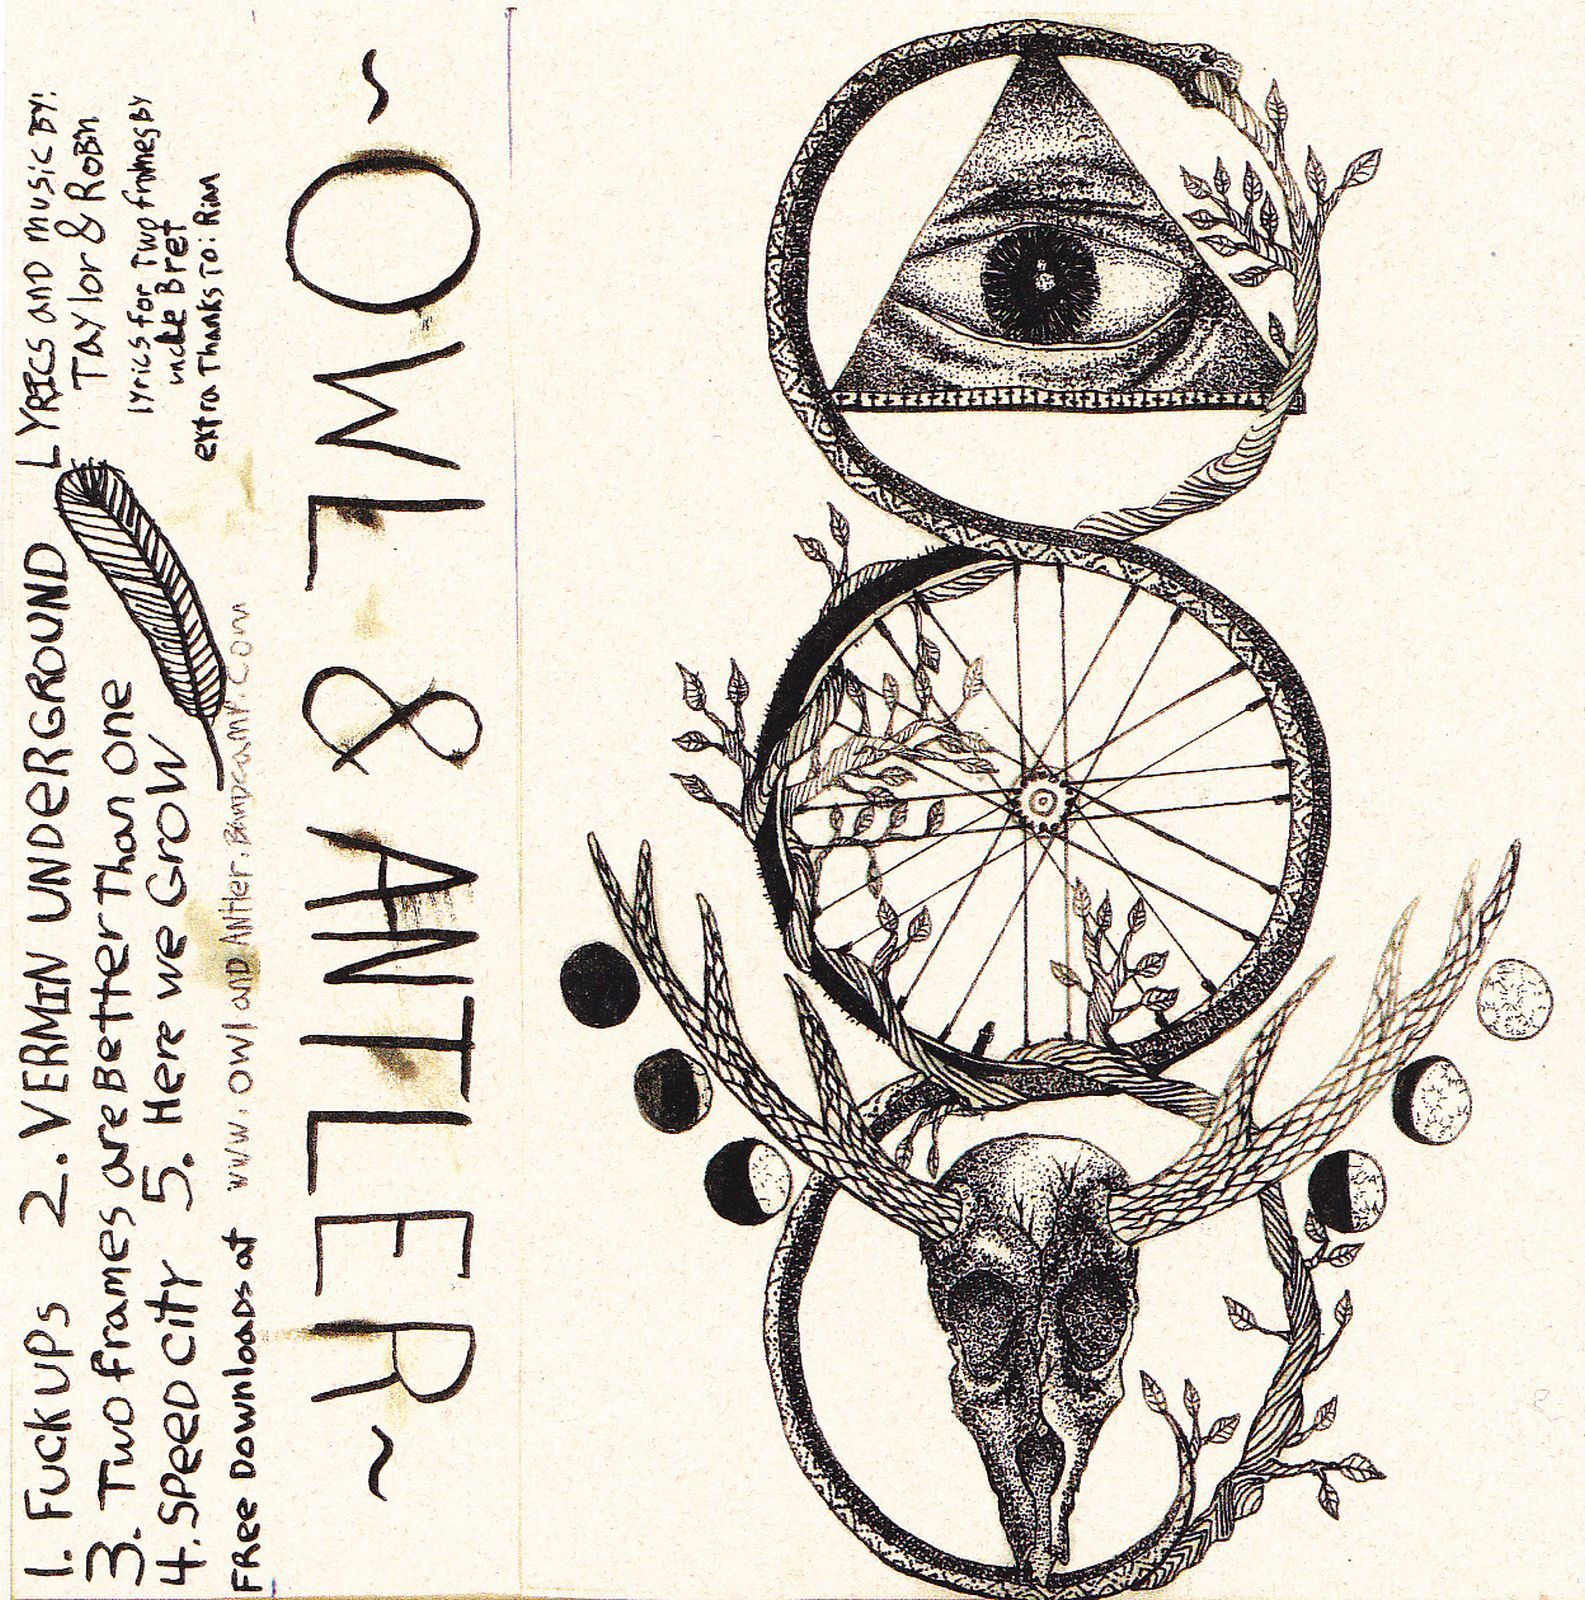 1. Fuck ups 2. VERMIN UNDERGROUND
3. Two frames are Better Than one
4. SPeeD CiTY 5. Here we GroW
Free Downloads at www.owlandAntler.Bandcamp.com
LYRICS and music BY:
Taylor & Robin
lyrics for Two frames BY
uncle Bret
extra Thanks To: Rian
~OWL & ANTLER~